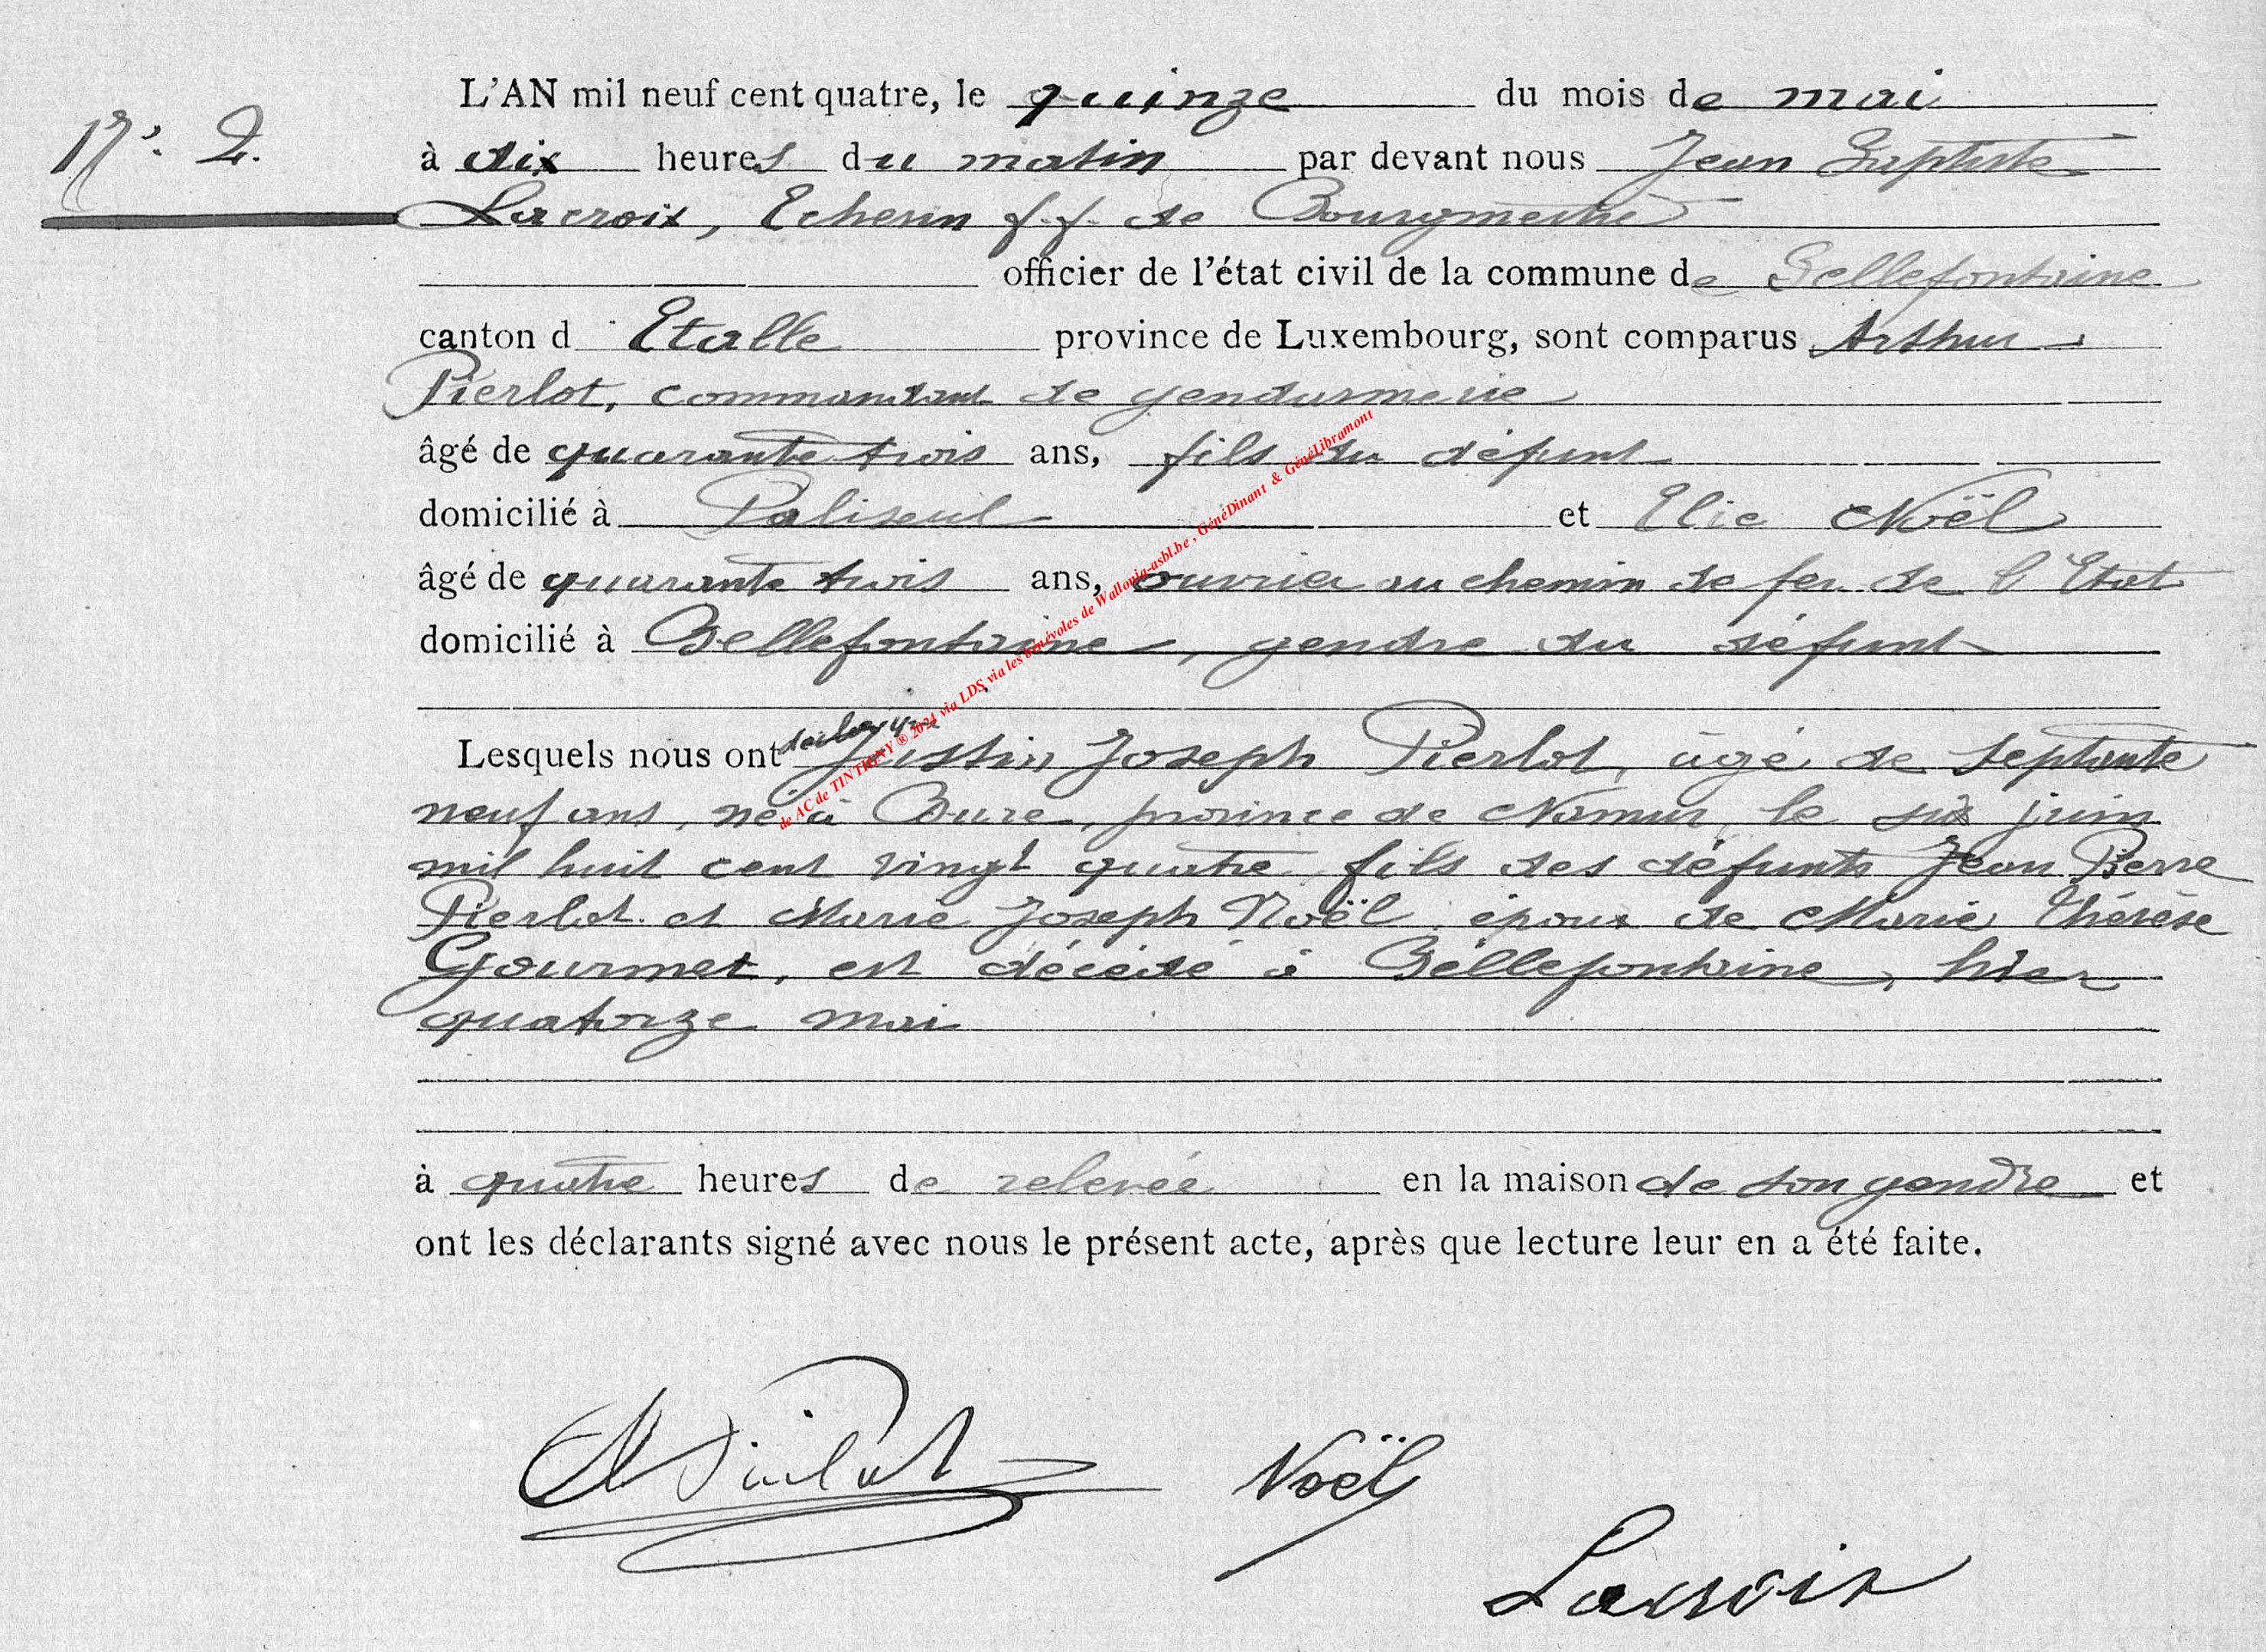 N° 2.
L'AN mil neuf cent quatre, le quinze du mois de mai
à dix heures du matin par devant nous Jean Baptiste
Lacroix, Echevin f.f. de Bourgmestre
officier de l'état civil de la commune de Bellefontaine
canton d Etalle province de Luxembourg, sont comparus Arthur
Pierlot, commandant de gendarmerie
âgé de quarante trois ans, fils du défunt
domicilié à Paliseul et Elie Noël
âgé de quarante trois ans, ouvrier au chemin de fer de l'Etat
domicilié à Bellefontaine, gendre du défunt
Lesquels nous ont déclaré que Justin Joseph Pierlot, âgé de septante
neuf ans, né à Bure, province de Namur, le six juin
mil huit cent vingt quatre, fils des défunts Jean Pierre
Pierlot et Marie Joseph Noël, époux de Marie Thérèse
Gourmet, est décédé à Bellefontaine, hier
quatorze mai
à quatre heures de relevée en la maison de son gendre et
ont les déclarants signé avec nous le présent acte, après que lecture leur en a été faite.
A Pierlot Noël
Lacroix
de AC de TINTIGNY ® 2024 via LDS, via les bénévoles de Wallonia-asbl.be, GénéDinant & GénéLibramont